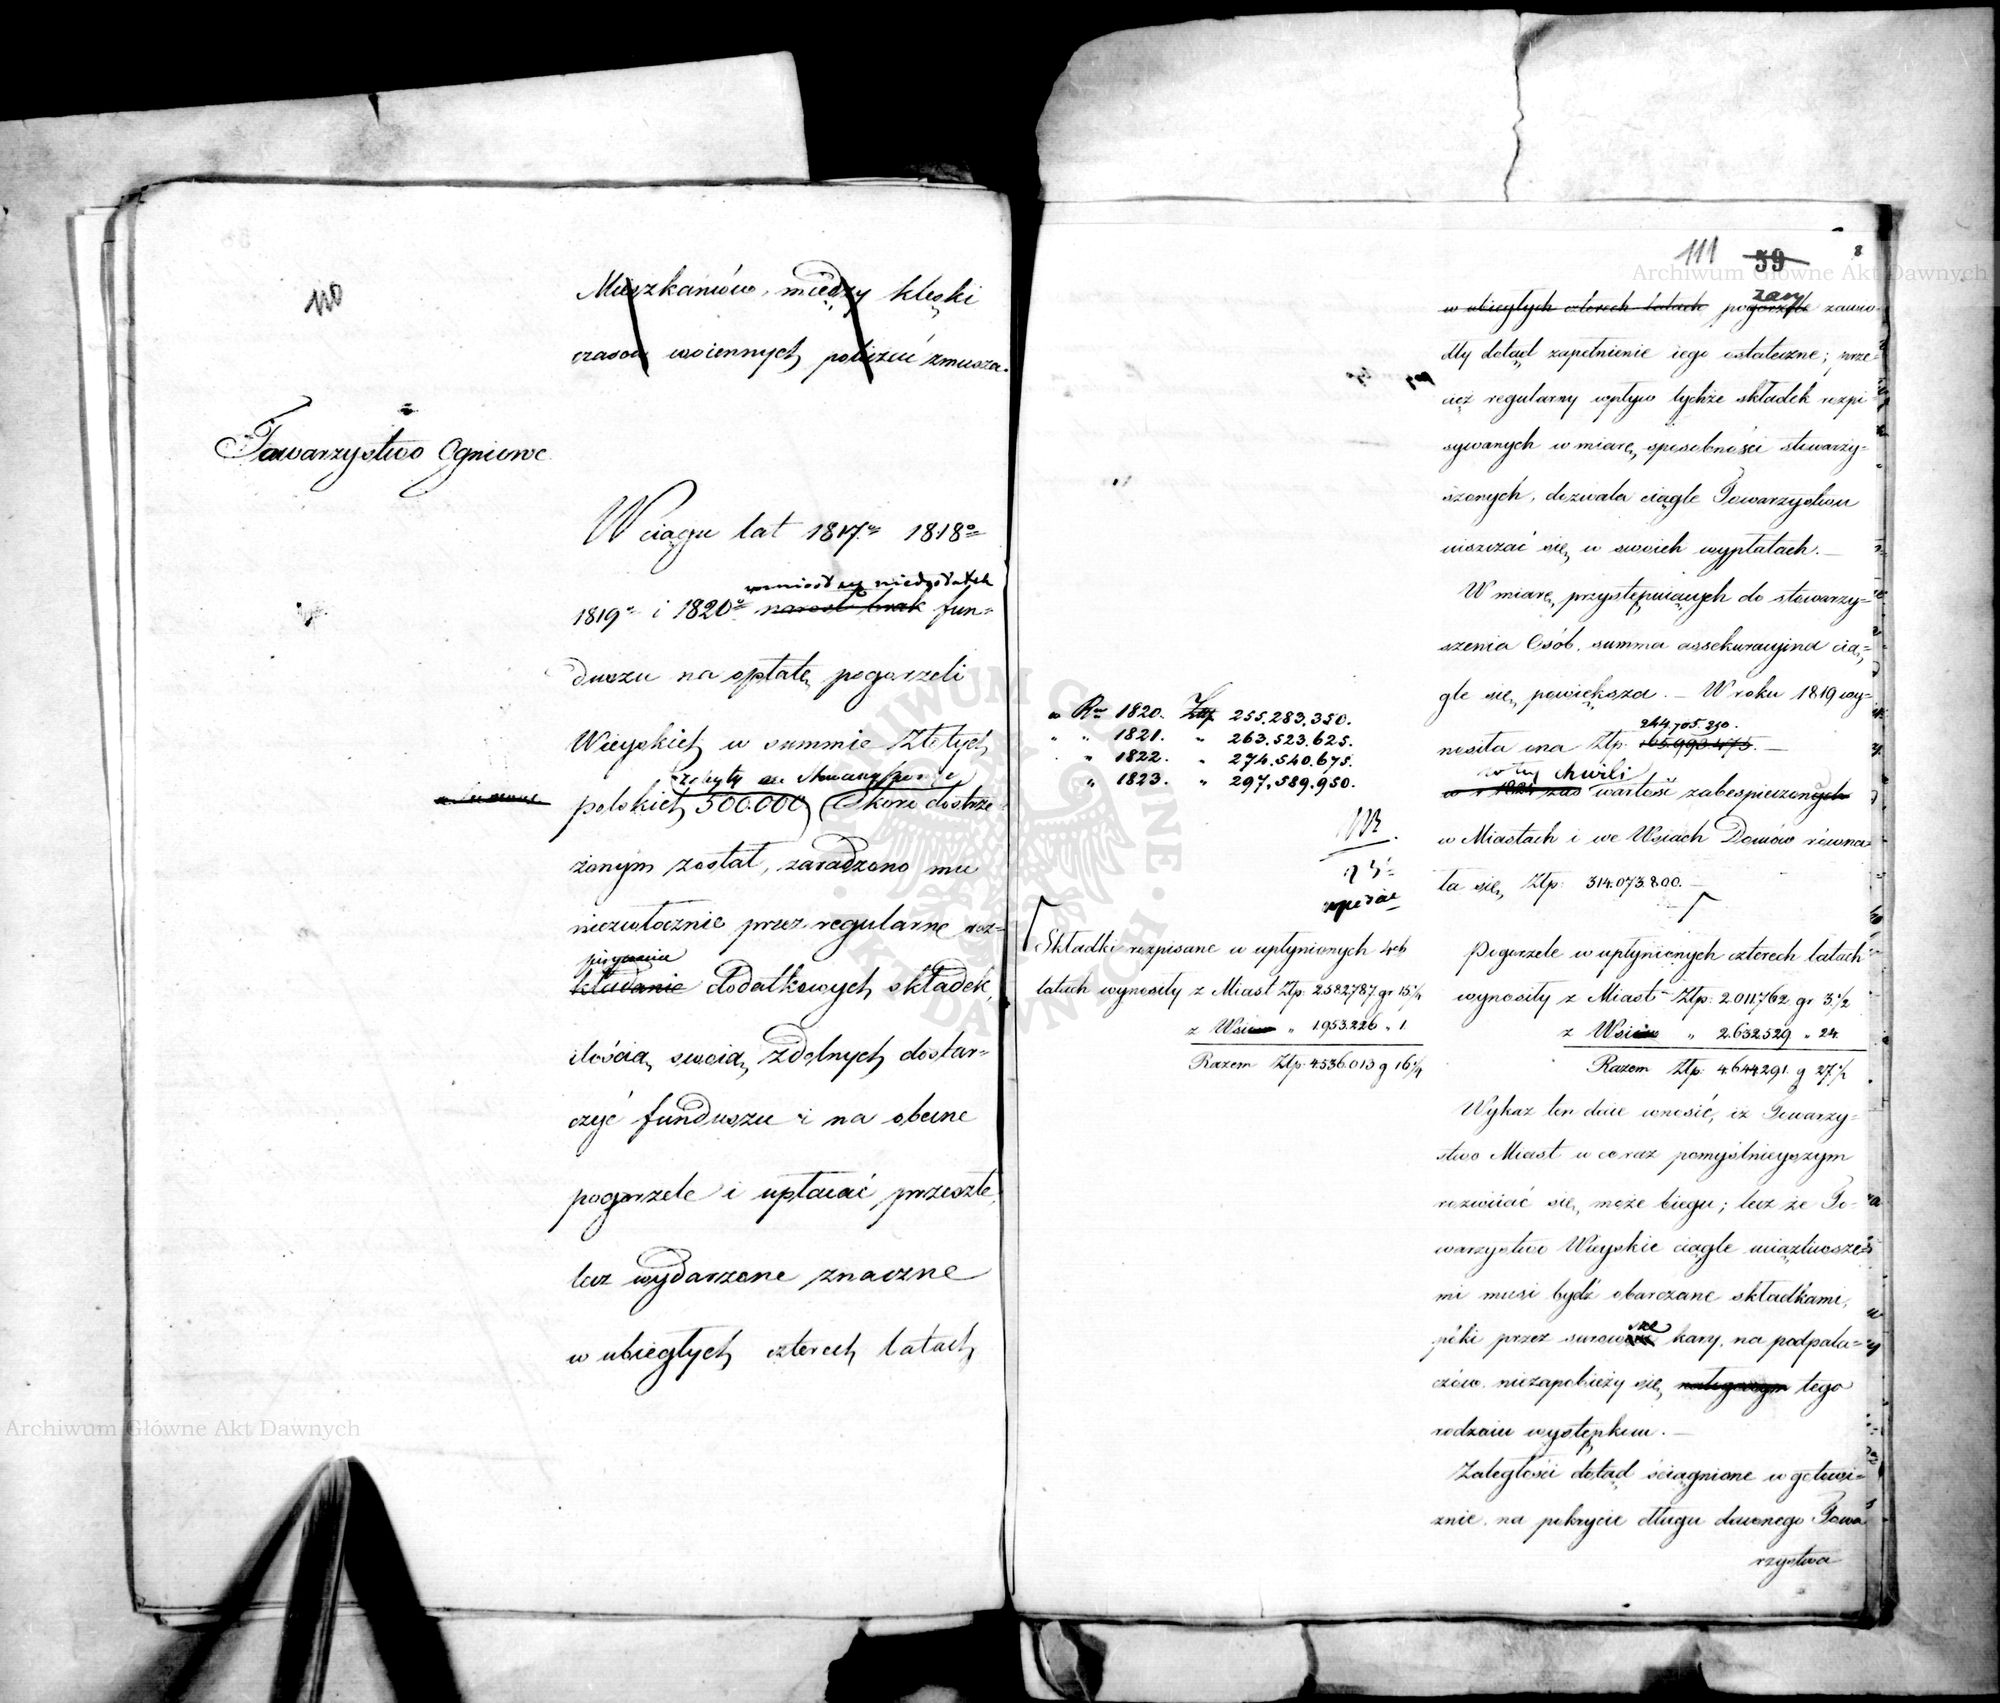 110
Mieszkańców, między klęski
czasów woiennych policzyć zmusza.
Towarzystwo Ogniowe
W ciągu lat 1817º 1818º
wzniósł się niedostatek
1819º i 1820º narosł brak fun=
duszu na opłatę pogorzeli
Wieyskich w summie Złotych
polskich 500.000 Skoro dostrze
żonym został, zaradzono mu
niezwłocznie przez regularne roz=
pisywanie
kładanie dodatkowych składek,
ilością swoią zdolnych dostar=
czyć funduszu i na obecne
pogorzele i upłacać przeszłe,
lecz wydarzone znaczne
w ubiegłych czterech latach
111 59 8
w ubiegłych czterech latach pogorzele zawio
dły dotąd zapełnienie iego ostateczne; prze=
cież regularny wpływ tychże składek rozpi
sywanych w miarę sposobności stowarzy=
szonych, dozwala ciągle Towarzystwu
uiszczać się w swoich wypłatach. —
W miarę przystępuiących do stowarzy=
szenia Osób, summa assekuracyina cią=
gle się powiększa. — W roku 1819 wy=
244,705.250.
nosiła ona Złp. 165.990.475. —
w tey chwili
w r 1824 zaś wartość zabespieczonych
w Miastach i we Wsiach Domów równa=
ła się Złp: 314.073.800. —
w Ru 1820. Złp 255.283.350.
" " 1821. " 263.523.625.
" 1822. " 274.540.675.
" 1823. " 297,589,950.
Składki rozpisane w upłynionych 4ch
latach wynosiły z Miast Złp: 2.582.787 gr 15 1/4
z Wsiow " 1.953.226 " 1
Razem Złp: 4.536.013 g 16 1/4
Pogorzele w upłynionych czterech latach
wynosiły z Miast Złp: 2.011.762 gr 3 1/2
z Wsiow " 2.632.529 " 24.
Razem Złp: 4.644.291. g 27 1/2
Wykaz ten daie wnosić, iż Towarzy=
stwo Miast w coraz pomyślnieyszym
rozwiiać się może biegu; lecz że To=
warzystwo Wieyskie ciągle uciążliwsze=
mi musi bydź obarczane składkami,
póki przez surowsze kary, na podpala=
czów, niezapobieży się tego
rodzaiu występkom. —
Zaległości dotąd ściągnione w gotowi=
znie, na pokrycie długu dawnego Towa
rzystwa
Archiwum Główne Akt Dawnych
Archiwum Główne Akt Dawnych
ARCHIWUM GŁÓWNE AKT DAWNYCH